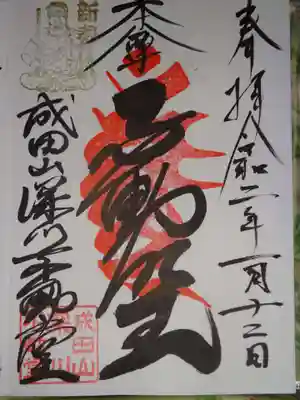 奉拝 令和二年一月十二日
本尊
不動堂
成田山深川不動堂